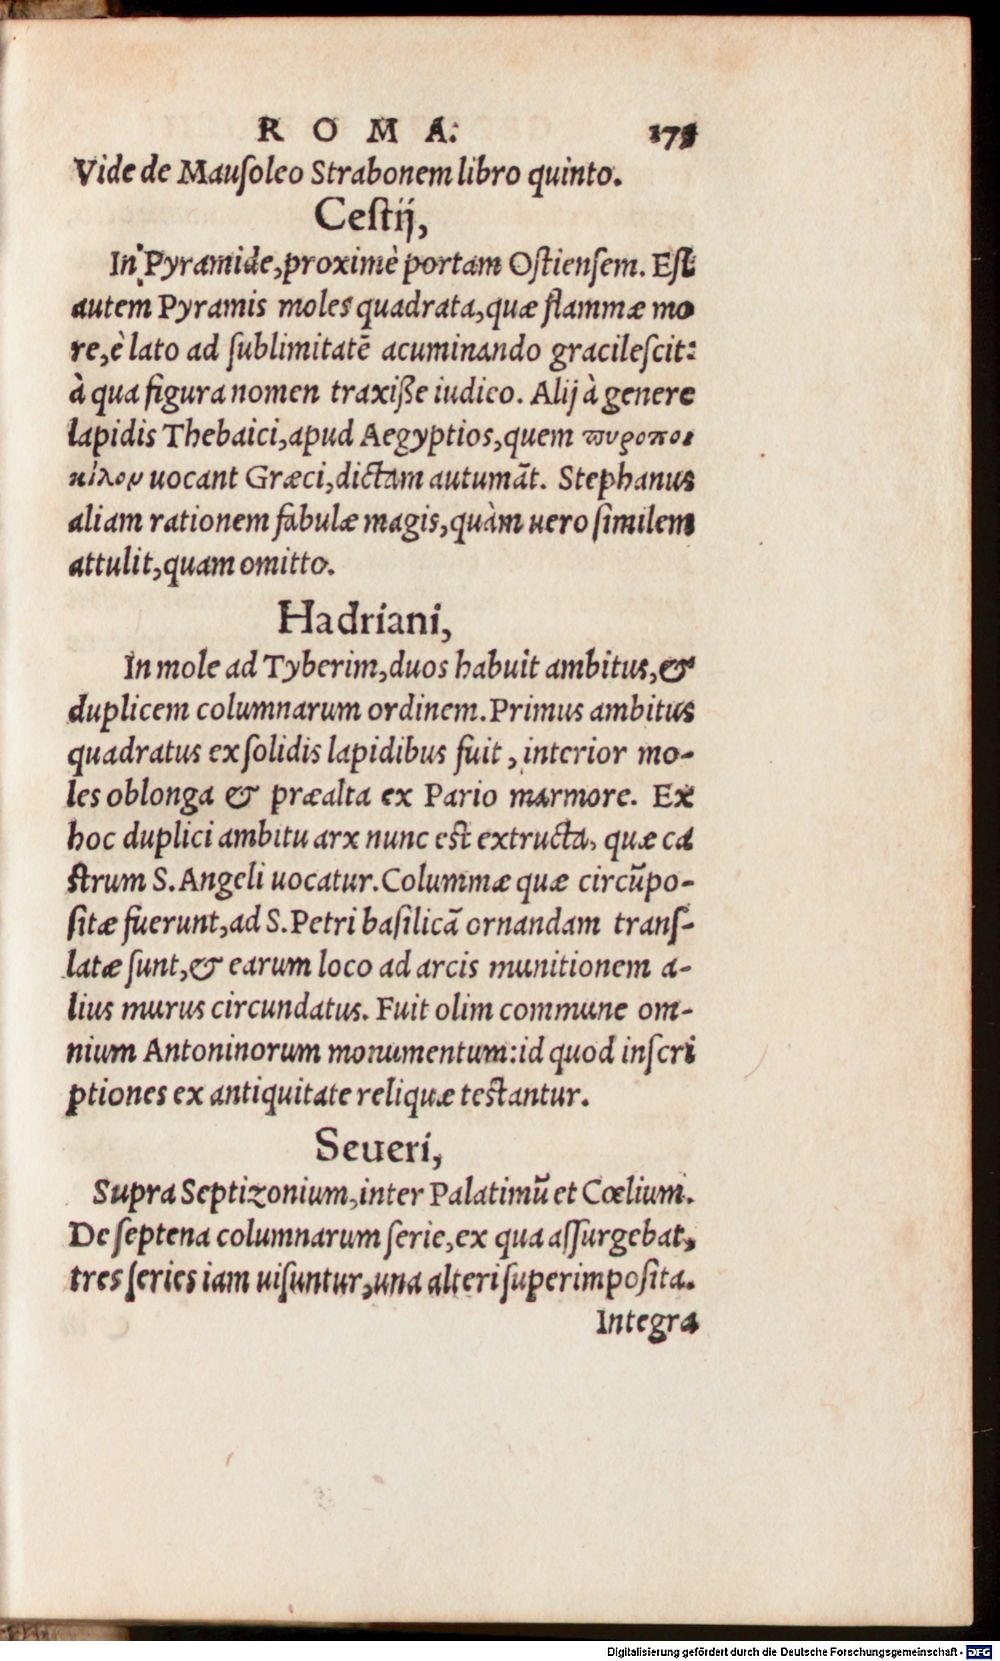 ROMA. 175
Vide de Mauſoleo Strabonem libro quinto.
Ceſtij,
In Pyramide, proximè portam Oſtienſem. Eſt
autem Pyramis moles quadrata, quæ flammæ mo
re, è lato ad ſublimitatē acuminando gracileſcit:
à qua figura nomen traxiſſe iudico. Alij à genere
lapidis Thebaici, apud Aegyptios, quem πυροποι
κίλον uocant Græci, dictam autumāt. Stephanus
aliam rationem fabulæ magis, quàm uero ſimilem
attulit, quam omitto.
Hadriani,
In mole ad Tyberim, duos habuit ambitus, &
duplicem columnarum ordinem. Primus ambitus
quadratus ex ſolidis lapidibus fuit, interior mo-
les oblonga & præalta ex Pario marmore. Ex
hoc duplici ambitu arx nunc eſt extructa, quæ ca
ſtrum S. Angeli uocatur. Colummæ quæ circūpo-
ſitæ fuerunt, ad S. Petri baſilicā ornandam tranſ-
latæ ſunt, & earum loco ad arcis munitionem a-
lius murus circundatus. Fuit olim commune om-
nium Antoninorum monumentum: id quod inſcri
ptiones ex antiquitate reliquæ teſtantur.
Seueri,
Supra Septizonium, inter Palatimū et Cœlium.
De ſeptena columnarum ſerie, ex qua aſſurgebat,
tres ſeries iam uiſuntur, una alteri ſuperimpoſita.
Integra
Digitalisierung gefördert durch die Deutsche Forschungsgemeinschaft - DFG